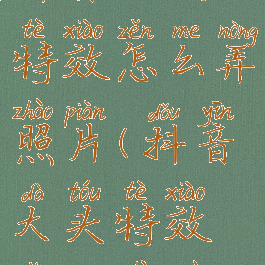 tè xiào zěn me nòng
特效怎么弄
zhào piàn dǒu yīn
照片(抖音
dà tóu tè xiào
大头特效